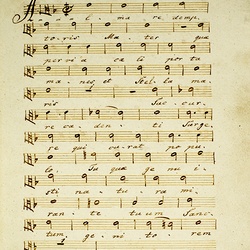 A
l - - ma re demp
to - ris Ma - ter quæ
per vi a cæ li por ta
ma - nes et Stel - la ma
ris Suc - cur
re ca - den - ti Surge
re qui cu - rat po pu
lo. Tu quæ ge nu i
sti na - tu - ra mi
ran - te tuum Sanc
tum ge ni to - rem